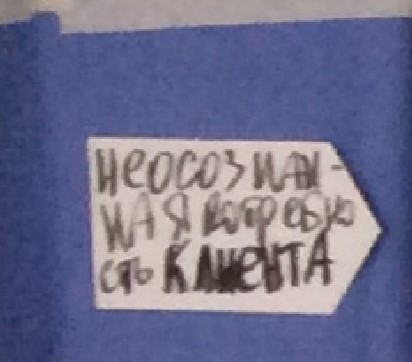 неосознан-
ная потребно
сть клиента